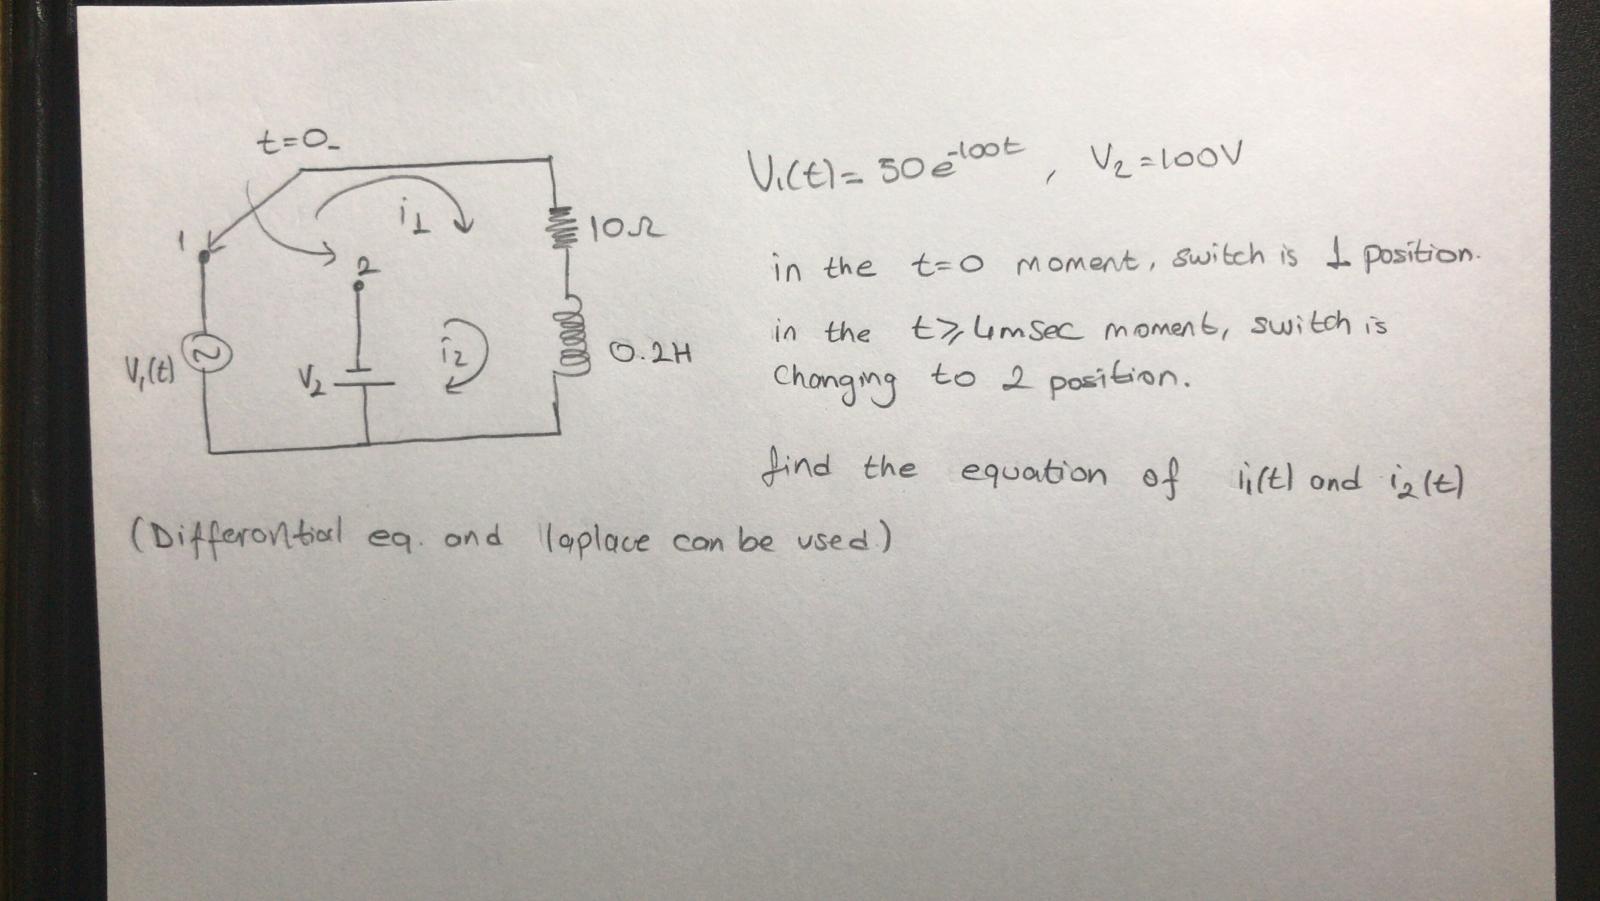 t=0-
V₁(t)= 50 e^-100t , V₂=100V
1
i1
10Ω
2
in the t=0 moment, switch is 1 position.
in the t⩾4msec moment, switch is
changing to 2 position.
V₁(t)
V₂
i₂
0.2H
find the equation of i₁(t) and i₂(t)
(Differontial eq. and laplace can be used)